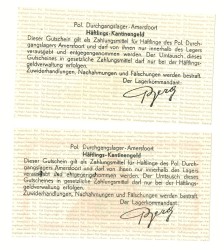 Pol. Durchgangslager Amersfoort
Häftlings-Kantinengeld
Dieser Gutschein gilt als Zahlungsmittel für Häftlinge des Pol. Durch-
gangslagers Amersfoort und darf von ihnen nur innerhalb des Lagers
verausgabt und entgegengenommen werden. Der Umtausch dieses
Gutscheines in gesetzliche Zahlungsmittel darf nur bei der Häftlings-
geldverwaltung erfolgen.
Zuwiderhandlungen, Nachahmungen und Fälschungen werden bestraft.
Der Lagerkommandant:
Pol. Durchgangslager Amersfoort
Häftlings-Kantinengeld
Dieser Gutschein gilt als Zahlungsmittel für Häftlinge des Pol. Durch-
gangslagers Amersfoort und darf von ihnen nur innerhalb des Lagers
verausgabt und entgegengenommen werden. Der Umtausch dieses
Gutscheines in gesetzliche Zahlungsmittel darf nur bei der Häftlings-
geldverwaltung erfolgen.
Zuwiderhandlungen, Nachahmungen und Fälschungen werden bestraft.
Der Lagerkommandant: